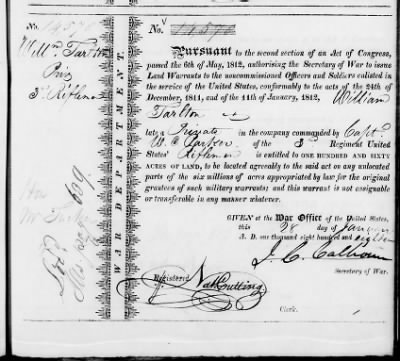 No. 14570
Willm Tarlton
Priv
3d Riflemen
WAR DEPARTMENT.
609
No. 14570
Pursuant to the second section of an Act of Congress,
passed the 6th of May, 1812, authorising the Secretary of War to issue
Land Warrants to the noncommissioned Officers and Soldiers enlisted in
the service of the United States, conformably to the acts of the 24th of
December, 1811, and of the 11th of January, 1812, William
Tarlton
late a Private in the company commanded by Capt
W. of the 3d Regiment United
States' Riflemen is entitled to ONE HUNDRED AND SIXTY
ACRES OF LAND, to be located agreeably to the said act on any unlocated
parts of the six millions of acres appropriated by law for the original
grantees of such military warrants; and this warrant is not assignable
or transferable in any manner whatever.
GIVEN at the War Office of the United States,
this 28 day of January
A. D. one thousand eight hundred and eighteen
J. C. Calhoun
Secretary of War.
Registered Nat Cutting
Clerk.